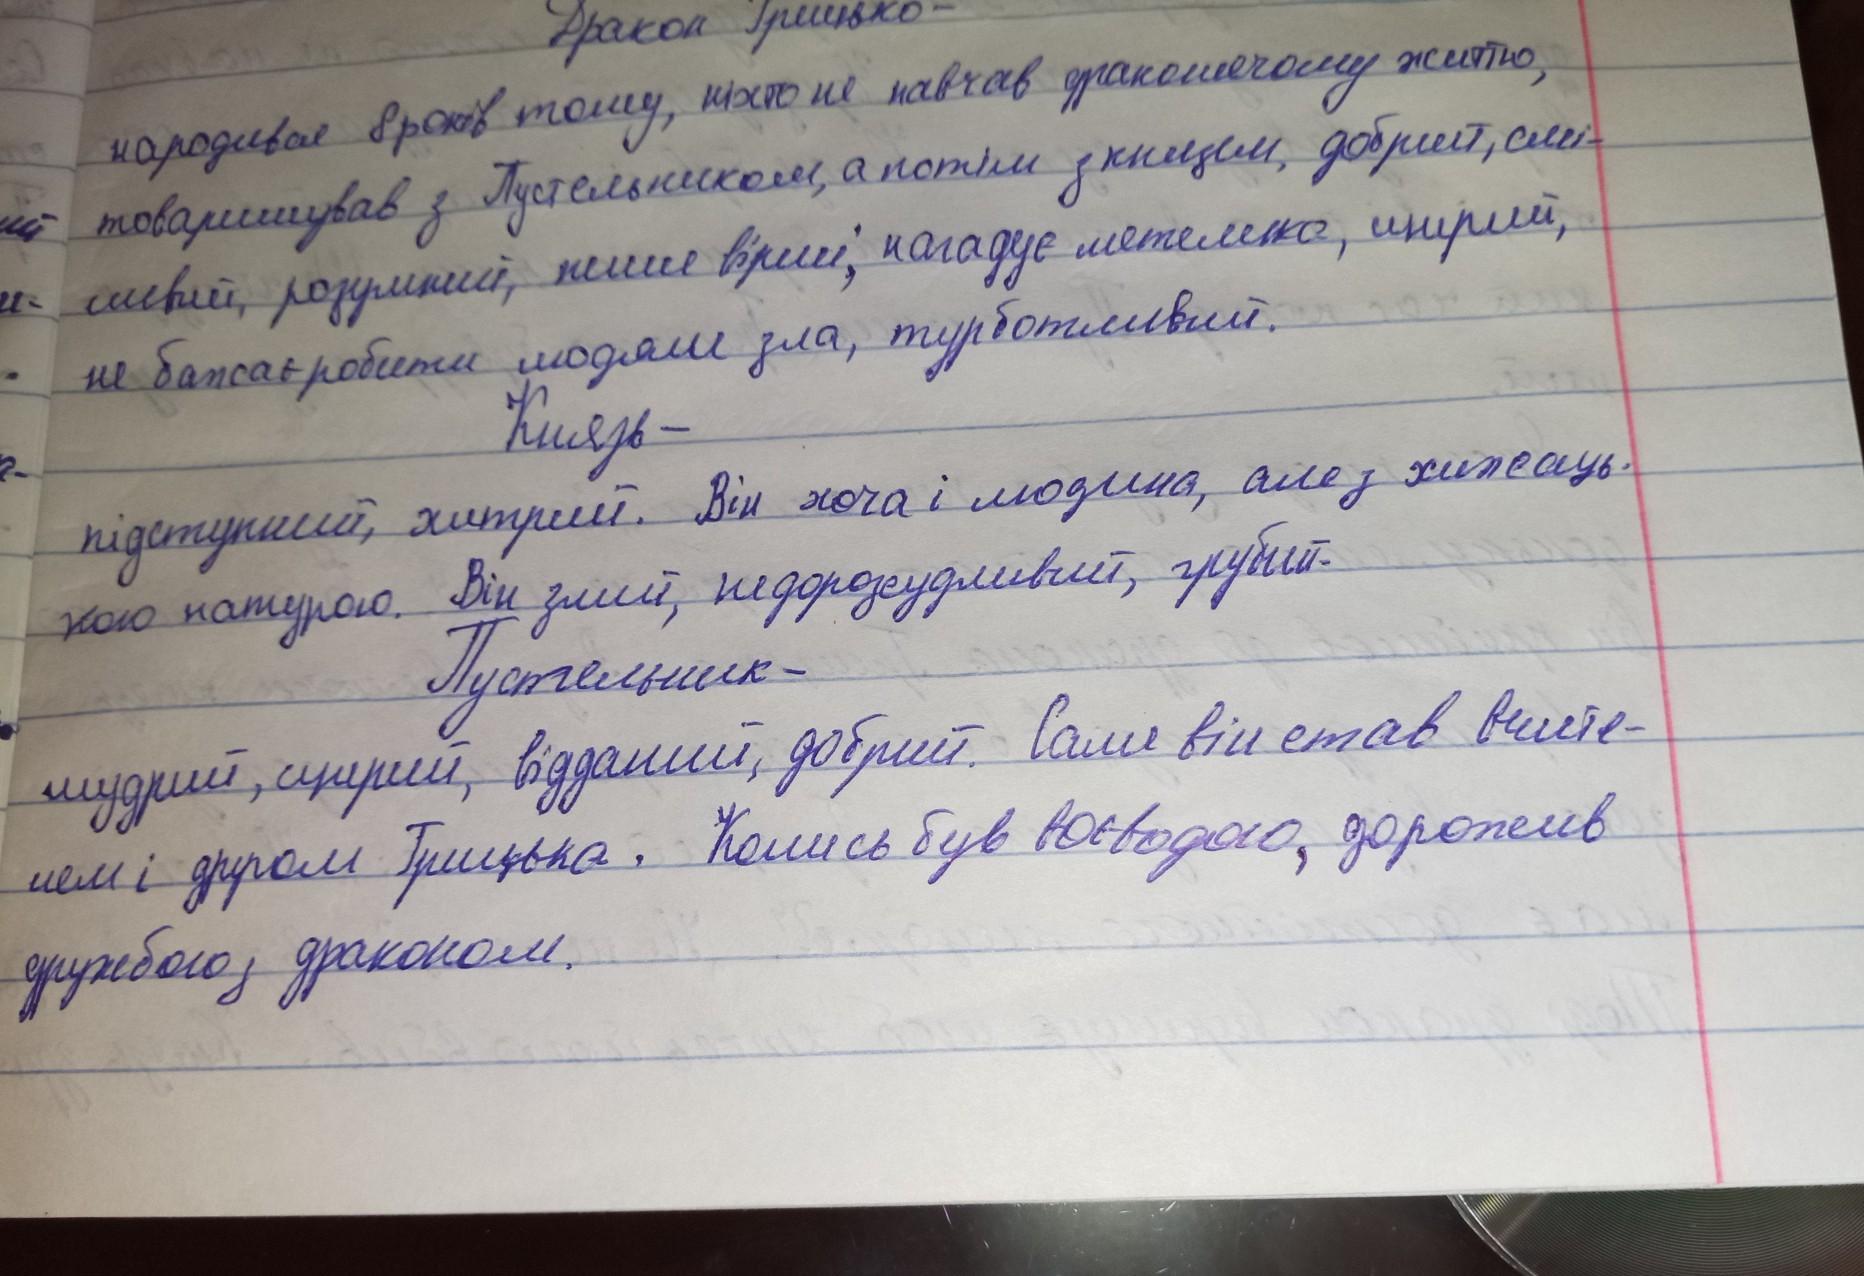 Дракон Грицько-
народився 8 років тому, ніхто не навчав драконячому життю,
товаришував з Пустельником, а потім з князем, добрий, смі-
ий
ливий, розумний, пише вірші, нагадує метелика, щирий,
и-
не бажає робити людям зла, турботливий.
Князь-
підступний, хитрий. Він хоча і людина, але з хижаць-
кою натурою. Він злий, недорозсудливий, грубий.
Пустельник-
мудрий, щирий, відданий, добрий. Саме він став вчите-
лем і другом Грицька. Колись був воєводою, дорожив
дружбою з драконом.